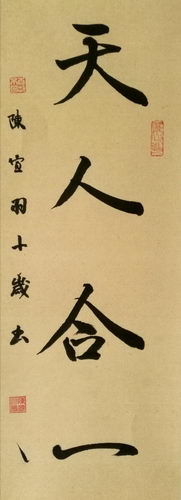 天人合一
陳宣羽十歲书